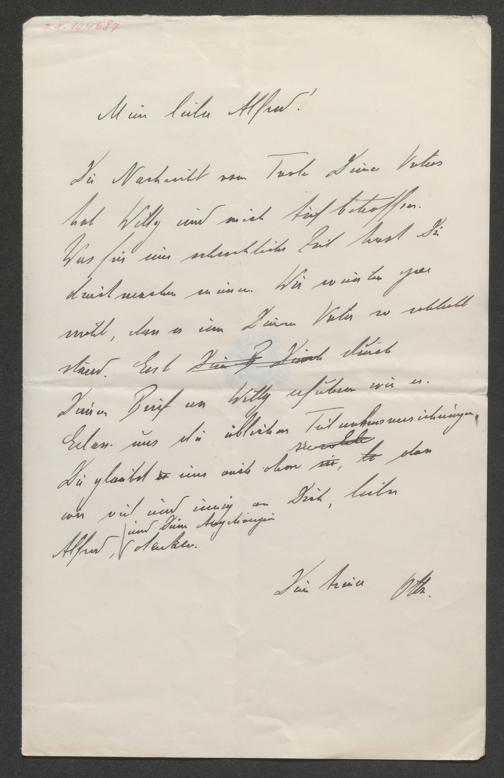 Mein lieber Alfred!
Die Nachricht vom Tode Deines Vaters
hat Willy und mich tief betroffen.
Was für eine schreckliche Zeit hast Du
durchmachen müssen. Wir wussten gar
nicht, dass es um Deinen Vater so schlecht
stand. Erst durch
Deinen Brief an Willy erfuhren wir es.
Erlass uns die üblichen Teilnahmsversicherungen,
Du glaubst uns auch ohne sie, dass
wir viel und innig an Dich, lieber
Alfred, und Deine Angehörigen denken.
Dein treuer Otto.